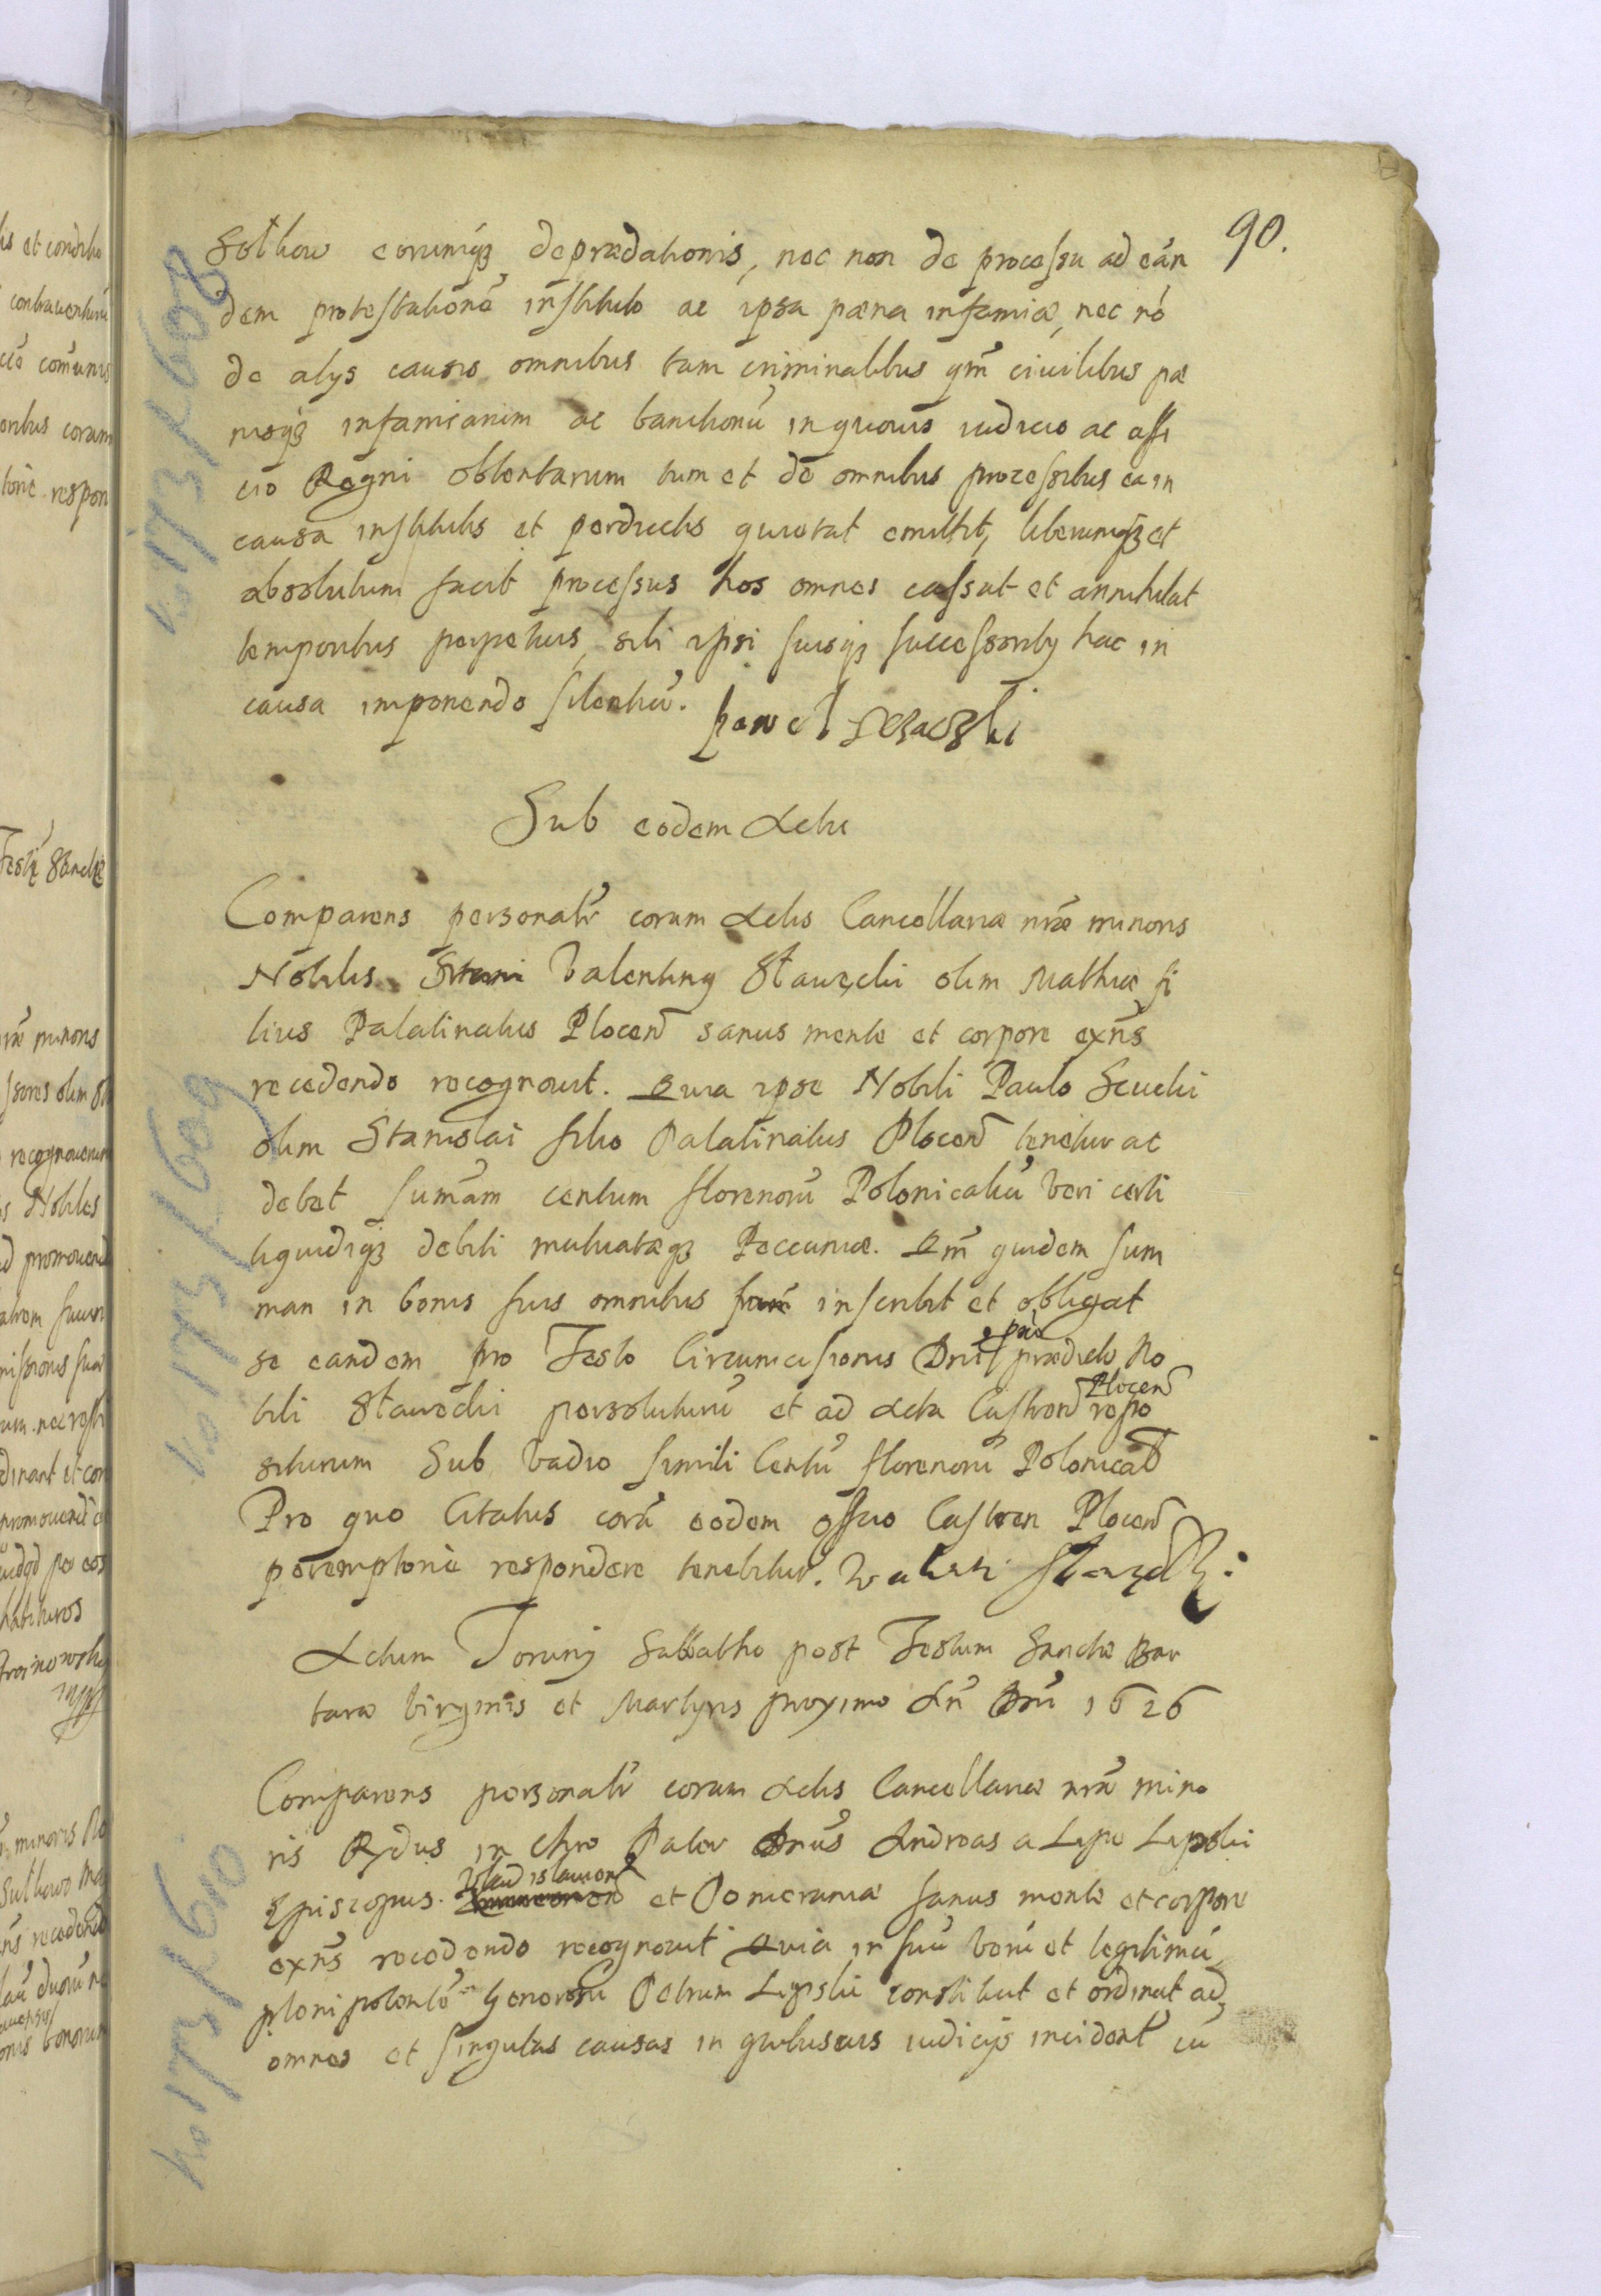 90.
eorumq₃ depraedationis, nec non de processu ad eān
dem protestationē instituto ac ipsa paena infamiae, nec nō
de alys causis omnibus tam criminalibus qm̄ ciuilibus pae
nisq₃ infamiarum ac bannitionū in quouis iudicio ac offi
cio Regni obtentarum tum et de omnibus processibus ea in
causa institutis et perductis quietat emittit, liberumq₃ et
absolutum facit processus hos omnes cassat et annihilat
temporibus perpetuis, sibi ipsi suisq₃ successoriby hac in
causa imponendo silentiū. pawel
Sub eodem Actu
Comparens personalr̄ coram Actis Cancellariae nrāe minoris
Nobilis Valentiny Stawęcki olim Mathiae fi
lius Palatinatus Plocen̄ sanus mente et corpore exn̄s
recedendo recognouit. Quia ipse Nobili Paulo
olim Stanislai filio Palatinatus Plocen̄ tenetur ac
debet sum̄am centum florenorū Polonicaliū veri certi
liquidiq₃ debiti mutuataeq₃ Peccuniae. Qm̄ quidem sum
mam in bonis suis omnibus inscribit et obligat
se eandem pro Festo Circumcisionis Dnī praedicto No
bili persoluturū et ad Acta Castren̄ Plocen̄ repo
siturum Sub vadio simili Centū florenorū Polonical̄
Pro quo Citatus corā eodem officio Castren Plocen̄
peremptorie respondere tenebitur. Walenti
Actum Toruny Sabbatho post Festum Sanctae Bar
barae Virginis et Martyris proximo An̄ Dnī 1626
Comparens personalr̄ coram Actis Cancellariae nrāe mino
ris Rn̄dus in Chro Pater Dnūs Andreas a Lipie Lipski
Episcopus Vladislauien̄ et Pomeraniae sanus mente et corpore
exn̄s recedendo recognouit Quia in suū verū et legitimū
plenipotentē Generosū Petrum Lipski constituit et ordinat ad
omnes et singulas causas in quibusuis iudicijs incident̄ cū
k. 173 / 608
k. 173 / 609
k. 173 / 610